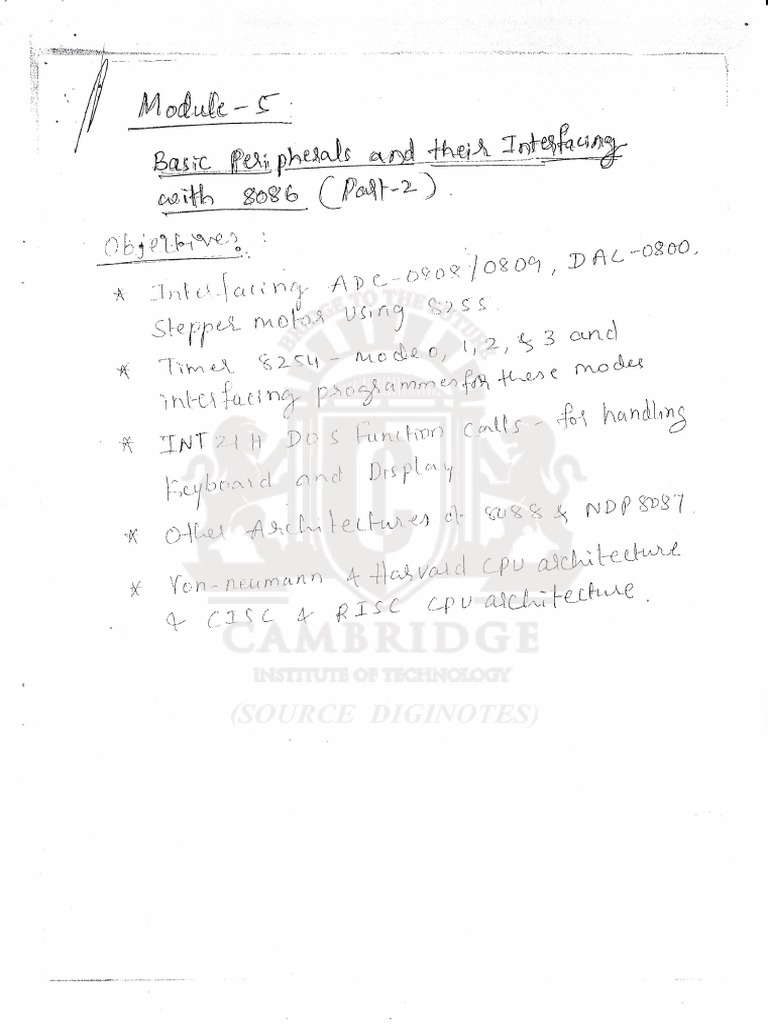 Module - 5
Basic Peripherals and their Interfacing
with 8086 (Part-2).
Objectives :
* Interfacing ADC-0808/0809, DAC-0800,
Stepper motor using 8255.
* Timer 8254 - mode 0, 1, 2, & 3 and
interfacing programmes for these modes
* INT 21H DOS Function calls - for handling
Keyboard and Display
* Other Architectures of 8088 & NDP 8087.
* Von-neumann & Harvard CPU architecture
& CISC & RISC CPU architecture.
BRIDGE TO THE FUTURE
CAMBRIDGE
INSTITUTE OF TECHNOLOGY
(SOURCE DIGINOTES)